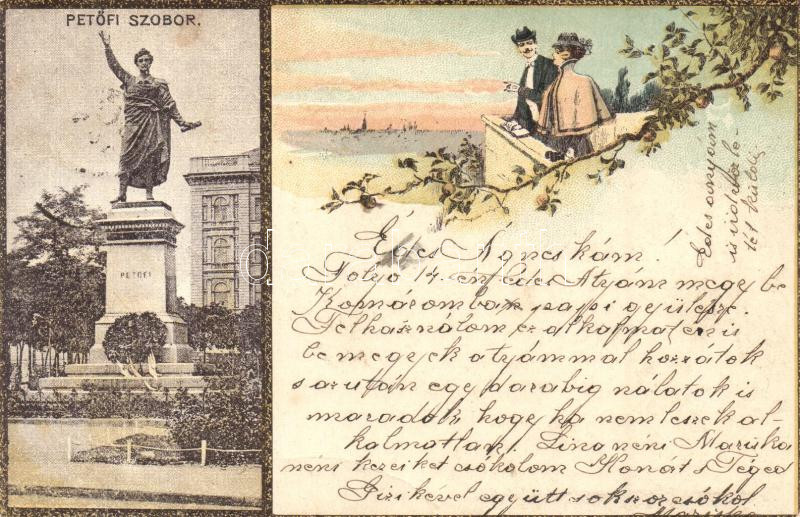 PETŐFI SZOBOR.
PETŐFI
Édes Ágneskám!
Folyó 14-én édes Atyám megy be
Komáromba papi gyűlésre.
Felhasználom ez alkalmat én is
be megyek atyámmal hozzátok
s azután egy darabig nálatok is
maradok, hogy ha nem leszek al-
kalmatlan. Lina néni Mariska
néni kezeiket csókolom Konát s Téged
Gizikével együtt sokszor csókol
Mariska
Édes anyám
is üdvözle-
tét küldi